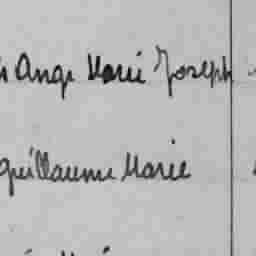 Ange Marie Joseph
Guillaume Marie